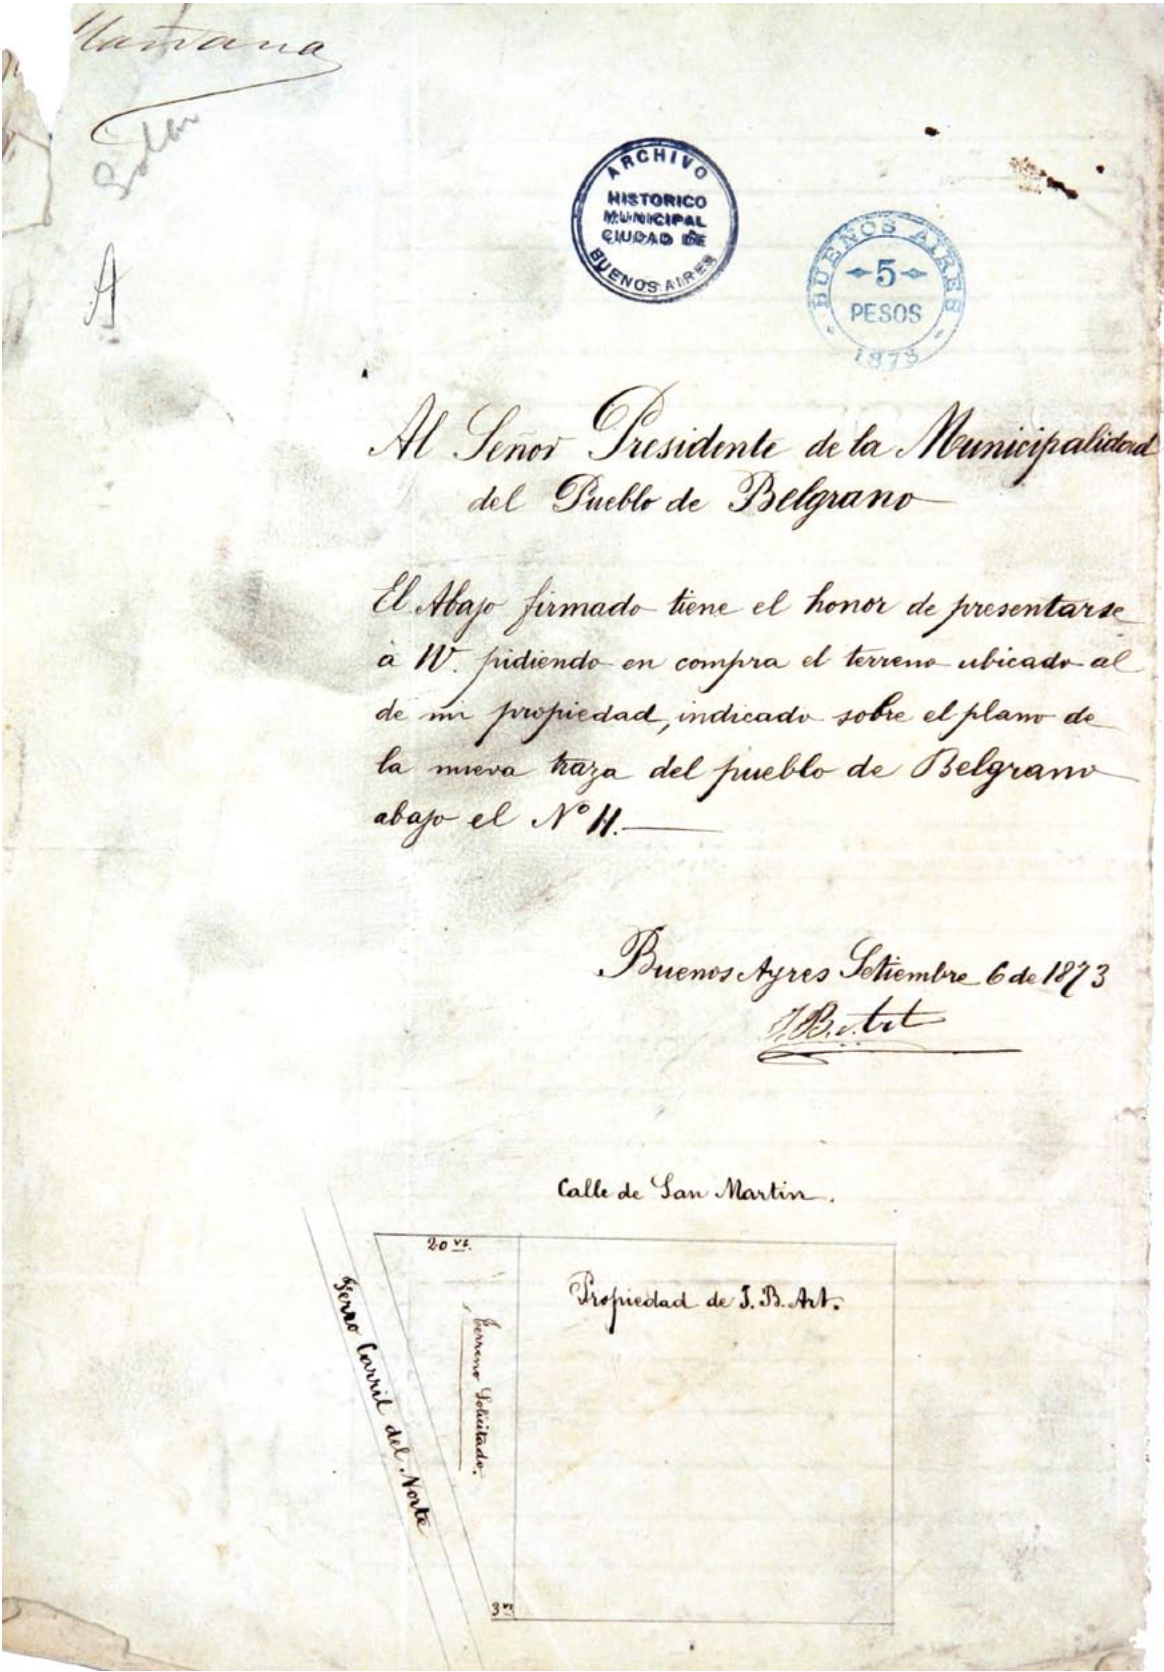 Mañana
Solar
A
ARCHIVO
HISTORICO
MUNICIPAL
CIUDAD DE
BUENOS AIRES
BUENOS AIRES
5
PESOS
1873
Al Señor Presidente de la Municipalidad
del Pueblo de Belgrano
El Abajo firmado tiene el honor de presentarse
à VV. pidiendo en compra el terreno ubicado al
de mi propiedad, indicado sobre el plano de
la nueva traza del pueblo de Belgrano
abajo el Nº 11.
Buenos Ayres Setiembre 6 de 1873
J. B. Art
Calle de San Martin.
20 vs.
Propiedad de J. B. Art.
Terreno Solicitado.
Ferro Carril del Norte
3 vs